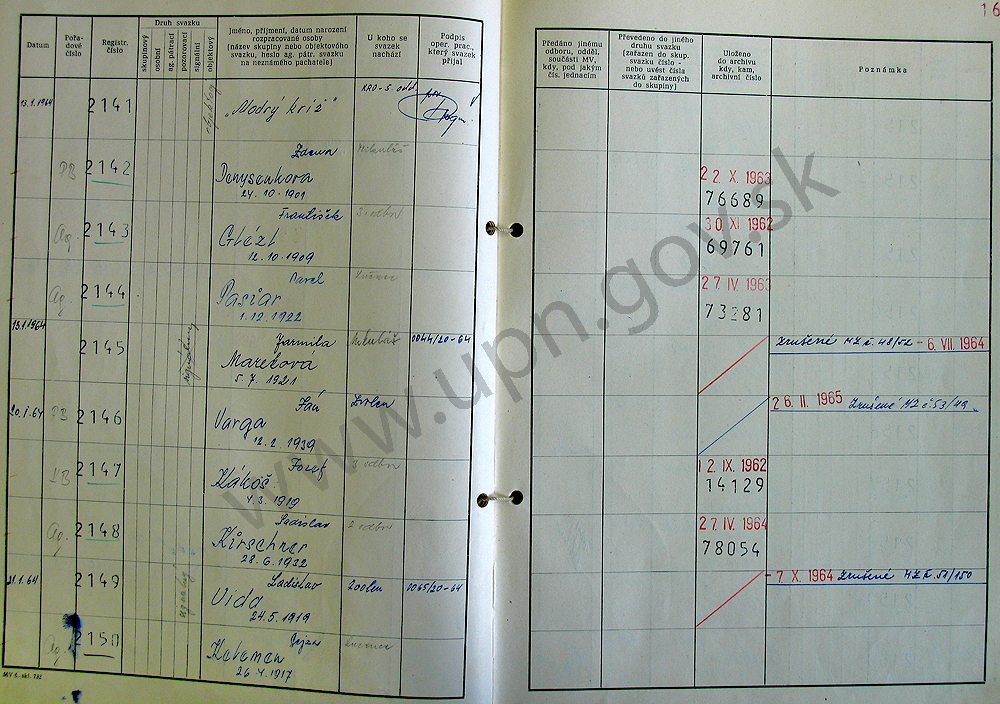 16
Datum
Pořadové číslo
Registr. číslo
Druh svazku
skupinový
osobní
ag. pátrací
pozorovací
signální
objektový
Jméno, příjmení, datum narození
rozpracované osoby
(název skupiny nebo objektového
svazku, heslo ag. pátr. svazku
na neznámého pachatele)
U koho se
svazek
nachází
Podpis
oper. prac.,
který svazek
přijal
Předáno jinému
odboru, odděl.,
součásti MV,
kdy, pod jakým
čís. jednacím
Převedeno do jiného
druhu svazku
(zařazen do skup.
svazku číslo -
nebo uvést čísla
svazků zařazených
do skupiny)
Uloženo
do archivu
kdy, kam,
archivní číslo
Poznámka
13.1.1964 2141 „Modrý kríž"
PB 2142 Denysenková 24.10.1901 Mikuláš
22 X. 1963
76689
Ag. 2143 František 12.10.1909 3. odbor
30 XI 1962
69761
Ag. 2144 Pavel Pasiar 1.12.1922
27 IV. 1963
73281
13.1.1964
2145 Jarmila Mareková 5.7.1921 Mikuláš 0044/20-64
Zrušené MZ č. 48/52 - 6. VII. 1964
20.1.64 PB 2146 Ján Varga 12.2 1939 Zvolen
26. II. 1965 Zrušené MZ č 53/49.
2147 Jozef Kákoš 4.3.1919 3 odbor
12. IX. 1962
14129
Ag. 2148 Ladislav Kirschner 28.6.1932 2 odbor
27. IV. 1964
78054
21.1.64 2149 Ladislav Vida 24.5.1919 Zvolen 0065/20-64
- 7 X. 1964 Zrušené MZ č. 51/150
Ag. 2150 Dejan Kelemen 26.4.1917 Lučenec
MV č. skl. 732
www.upn.gov.sk